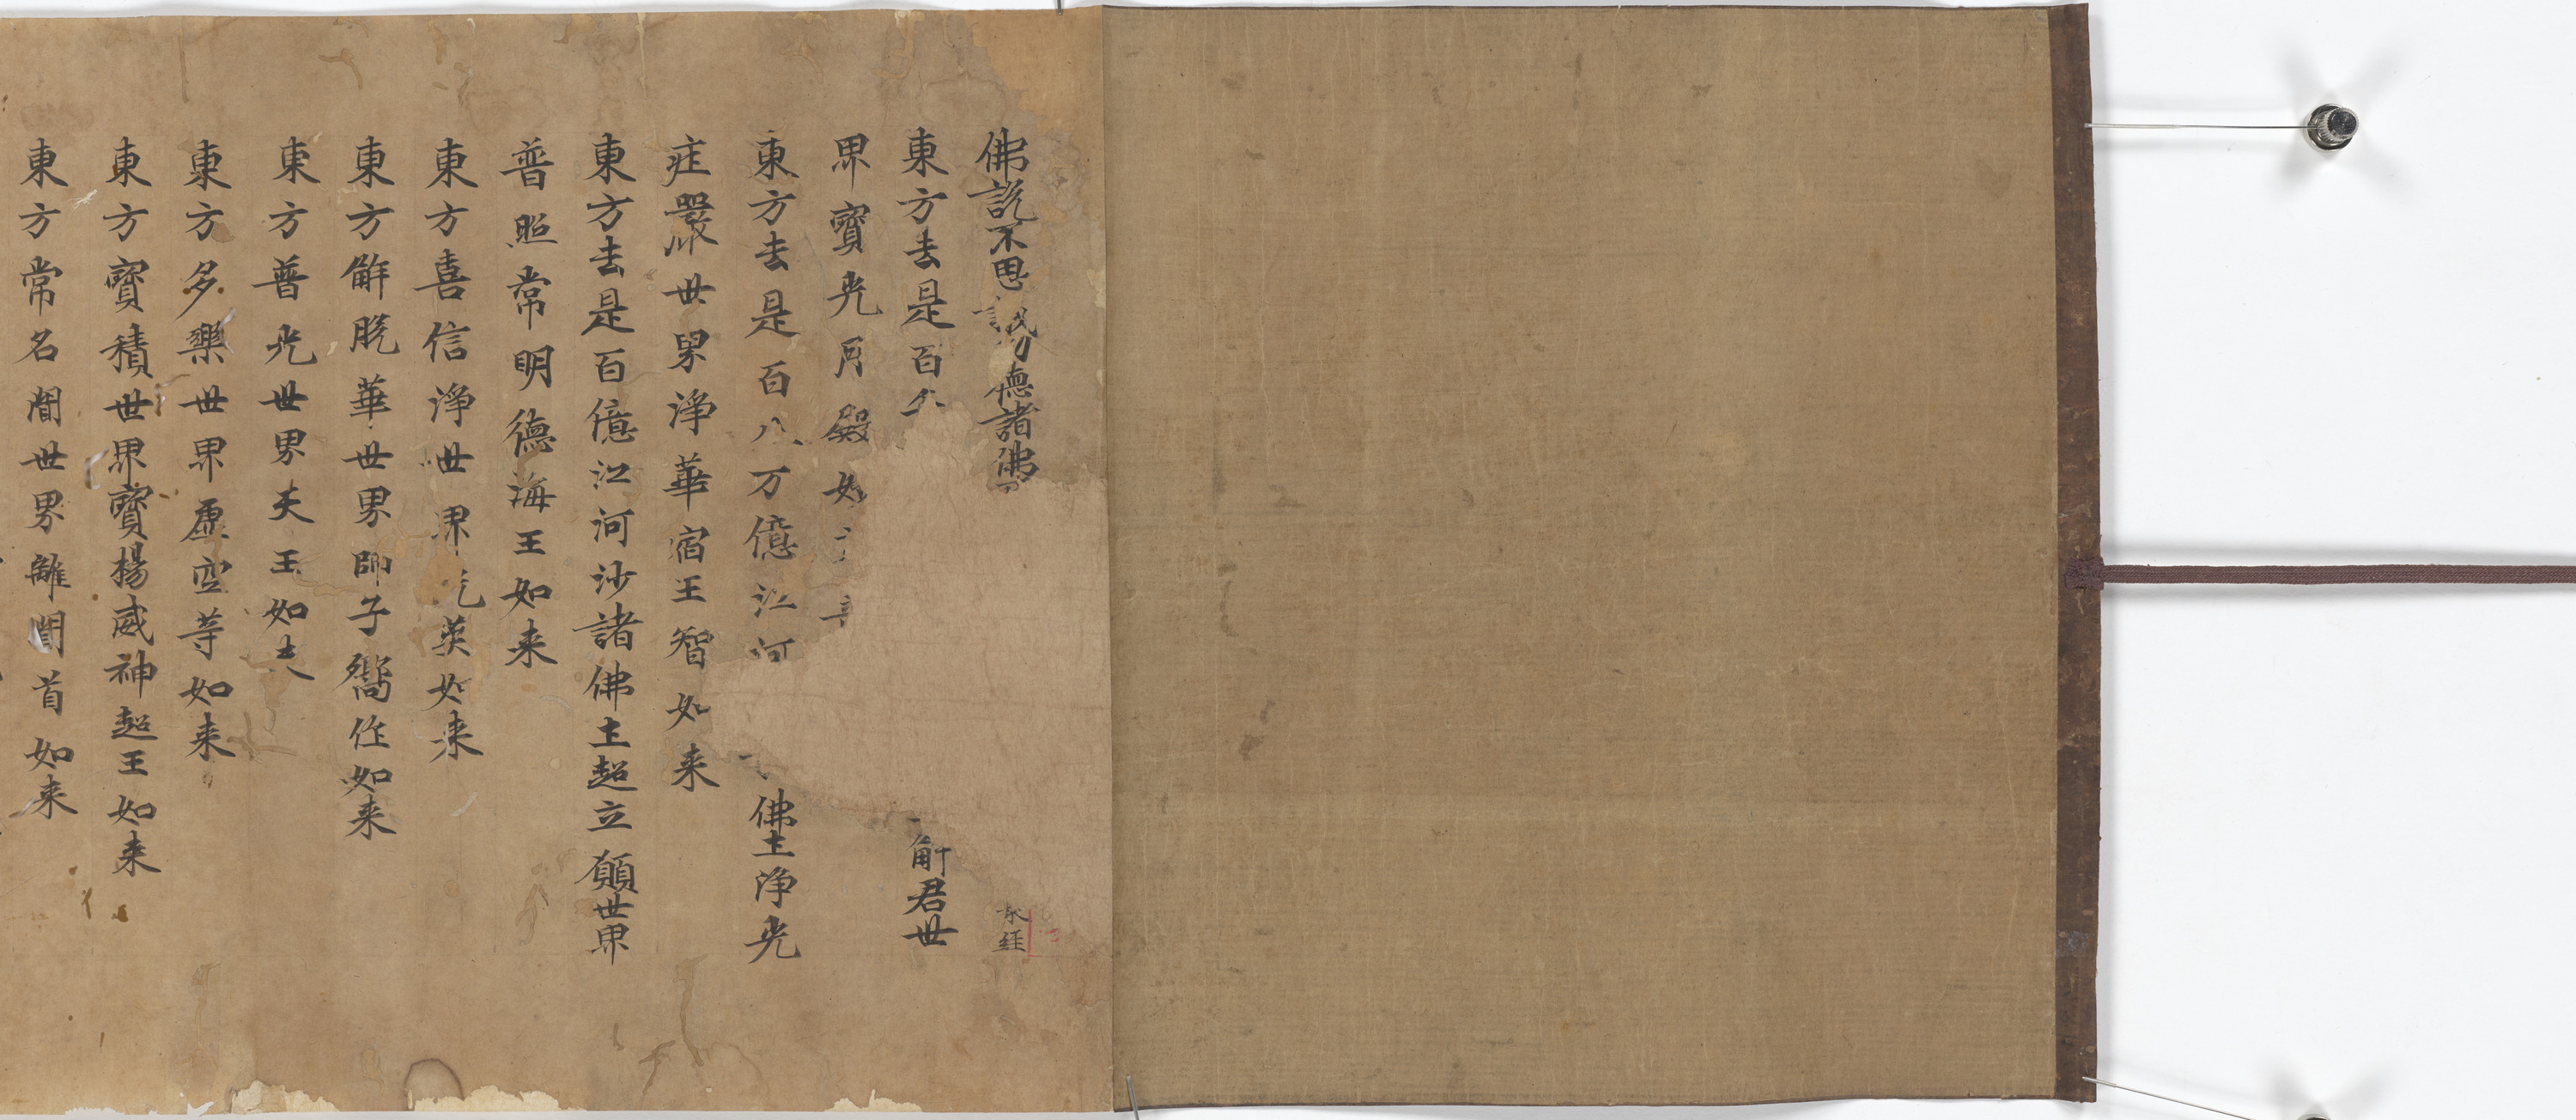 佛說不思議功德諸佛
永經
東方去是百解君世
界寶光月殿如
東方去是百八万億江河佛土淨光
庄嚴世界淨華宿王智如来
東方去是百億江河沙諸佛土超立願世界
普照常明德海王如来
東方喜信淨世界光英如来
東方解脫華世界師子嚮作如来
東方普光世界天王如来
東方多樂世界虛空等如来
東方寶積世界寶楊威神超王如来
東方常名聞世界離聞首如来